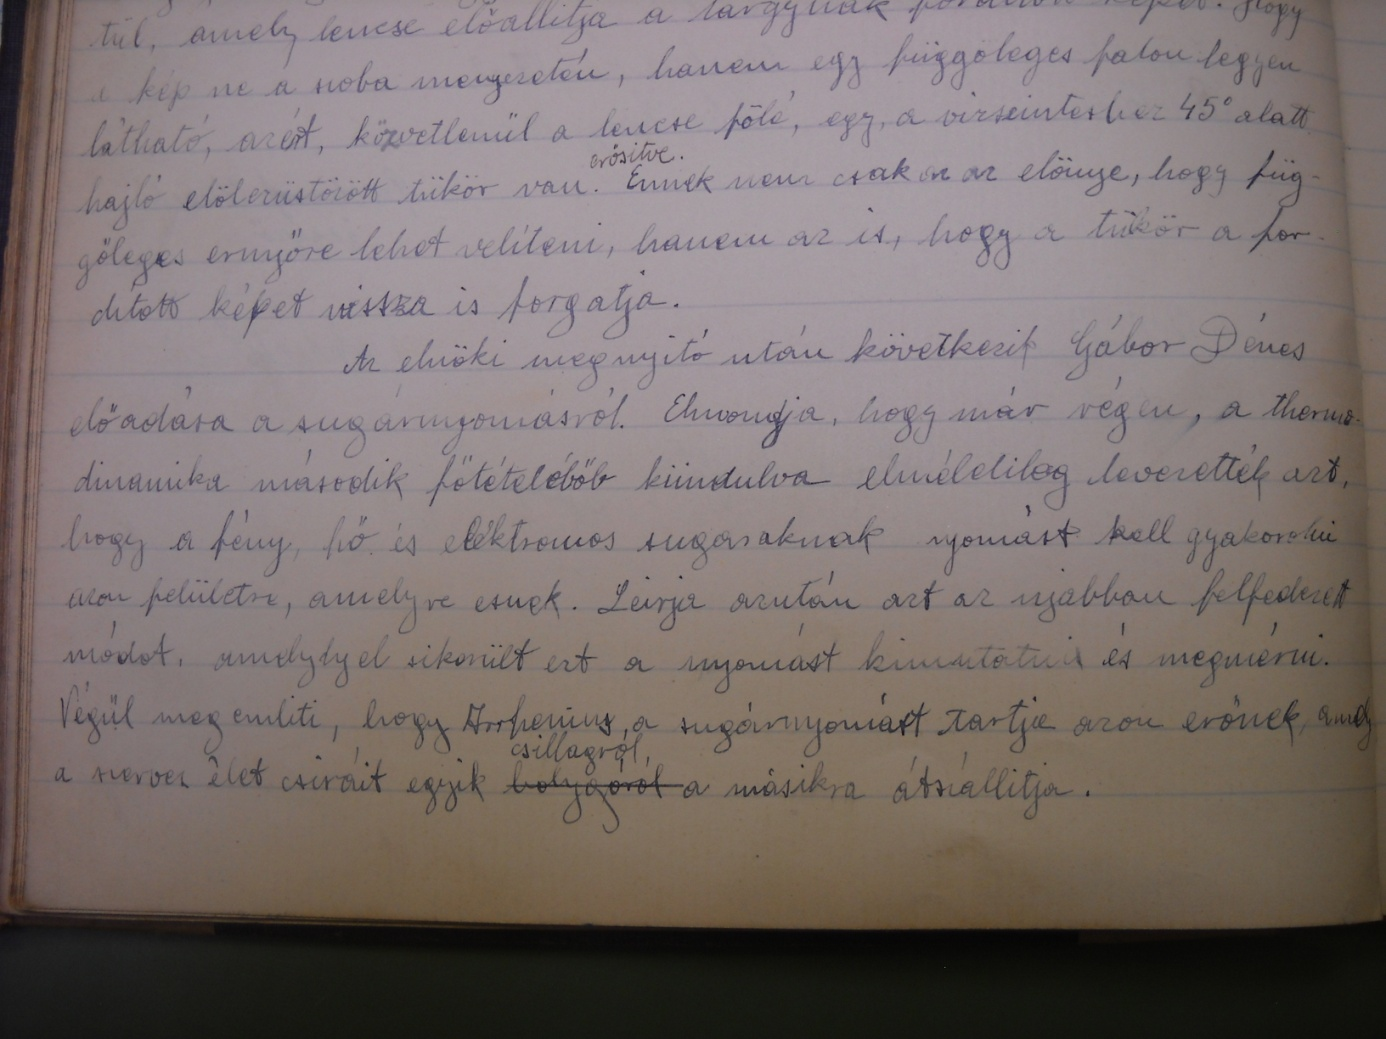 túl, amely lencse előállitja a tárgynak forditott képét. Hogy
a kép ne a szoba mennyezetén, hanem egy függőleges falon legyen
látható, azért, közvetlenül a lencse fölé, egy, a vizszinteshez 45° alatt
hajló elölezüstözött tükör van erősitve. Ennek nem csak az az előnye, hogy füg-
gőleges ernyőre lehet vetíteni, hanem az is, hogy a tükör a for-
ditott képet vissza is forgatja.
Az elnöki megnyitó után következik Gábor Dénes
előadása a sugárnyomásról. Elmondja, hogy már régen, a thermo-
dinamika második főtételéből kiindulva elméletileg levezették azt,
hogy a fény, hő és elektromos sugaraknak nyomást kell gyakorolni
azon felületre, amelyre esnek. Leirja azután azt az ujabban felfedezett
módot, amelylyel sikerült ezt a nyomást kimutatni és megmérni.
Végül megemliti, hogy Arrhenius, a sugárnyomást tartja azon erőnek, amely
a szerves élet csiráit egyik csillagról, bolygóról a másikra átszállitja.